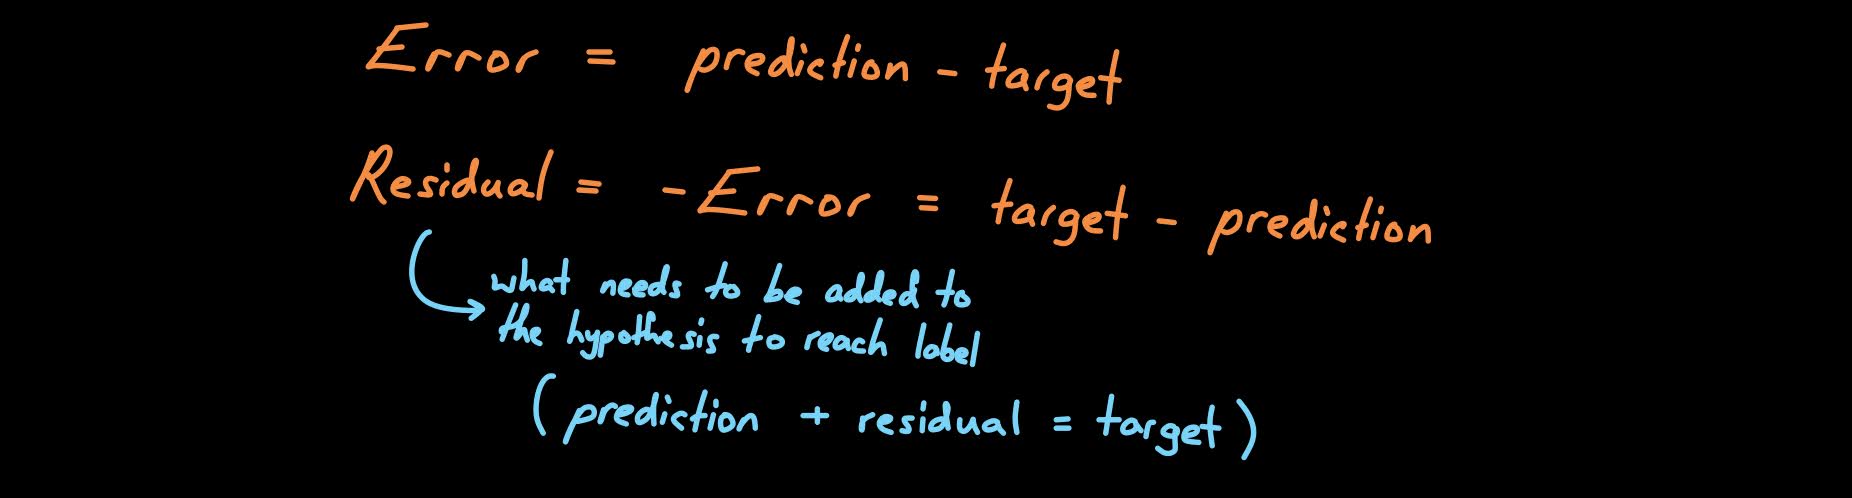 Error = prediction - target
Residual = - Error = target - prediction
what needs to be added to
the hypothesis to reach label
(prediction + residual = target)